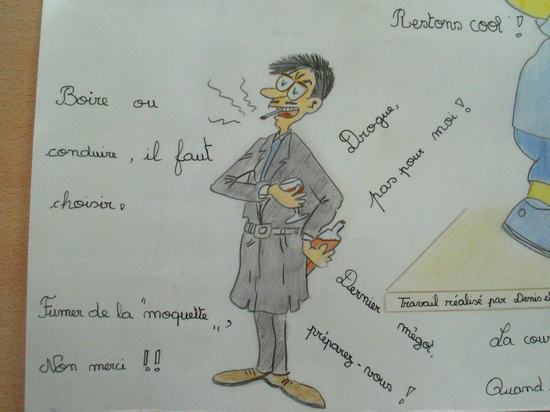 Restons cool !
Boire ou
conduire, il faut
choisir.
Drogue,
pas pour moi !
Fumer de la "moquette",
Non merci !!
Dernier mégot,
préparez-vous !
Travail réalisé par Denis et
La cour
Quand